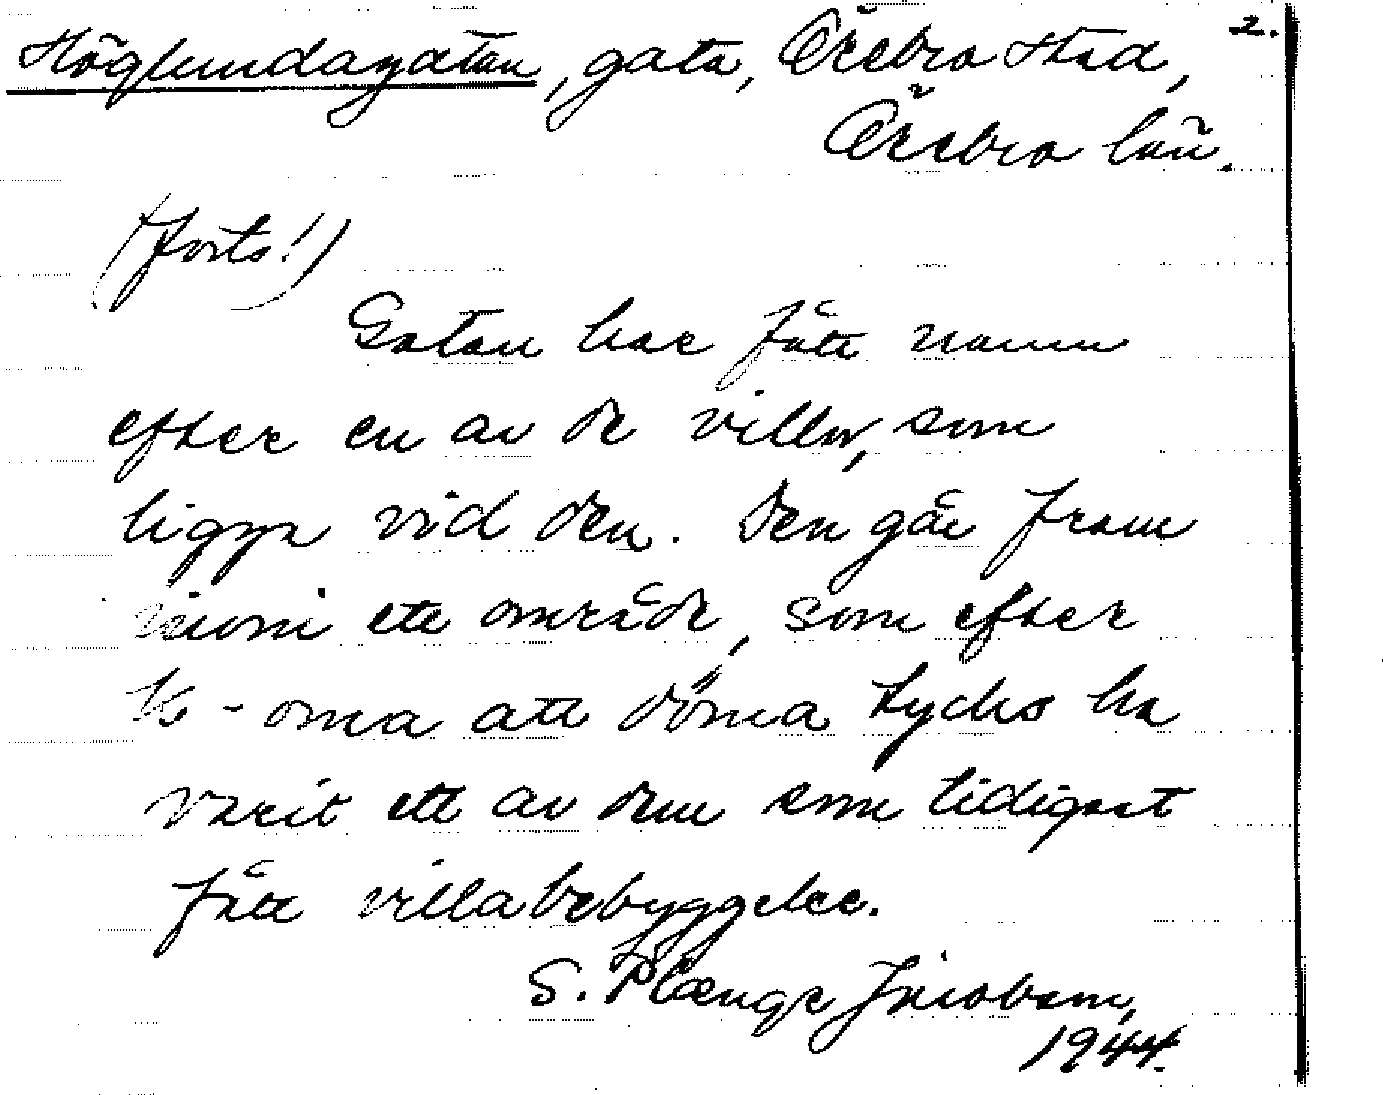 2.
Höglundagatan, gata, Örebro stad,
Örebro län.
(forts!)
Gatan har fått namn
efter en av de villor, som
ligga vid den. Den går fram
inom ett område, som efter
k-orna att döma tycks ha
varit ett av dem som tidigast
fått villabebyggelse.
S. Plænge Jacobson,
1944.